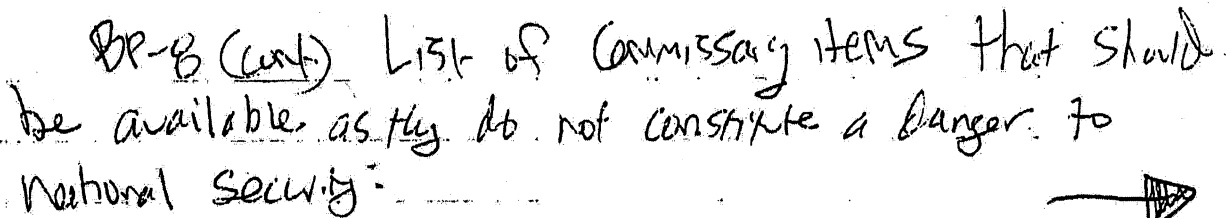 BP-8 (cont.) List of Commissary items that should
be available, as they do not constitute a danger to
national security: